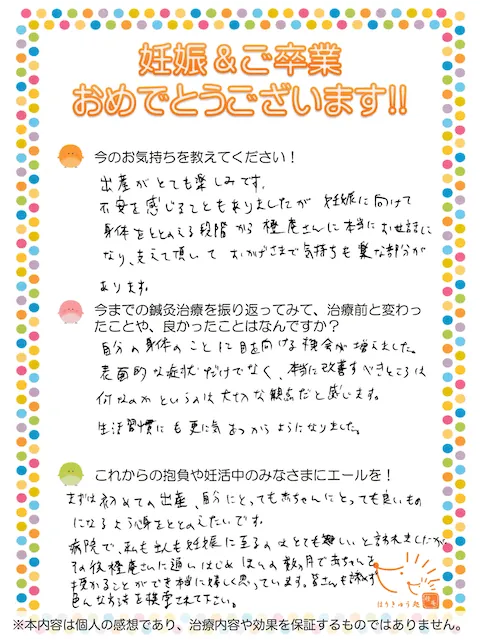 妊娠&ご卒業
おめでとうございます!!
今のお気持ちを教えてください！
出産がとても楽しみです。
不安を感じることもありましたが 妊娠に向けて
身体をととのえる段階から 橙庵さんに本当にお世話に
なり、支えて頂いて おかげさまで気持ちも楽な部分が
あります。
今までの鍼灸治療を振り返ってみて、治療前と変わっ
たことや、良かったことはなんですか？
自分の身体のことに目を向ける機会が増えました。
表面的な症状だけでなく、本当に改善すべきところは
何なのか というのは 大切な観点だと感じます。
生活習慣にも更に気をつかうようになりました。
これからの抱負や妊活中のみなさまにエールを！
まずは初めての出産、自分にとっても赤ちゃんにとっても良いもの
になるよう心身をととのえたいです。
病院で、私も主人も妊娠に至るのはとても難しいと言われましたが
その後橙庵さんに通いはじめ ほんの数ヶ月で赤ちゃんを
授かることができ本当に嬉しく思っています。皆さんも諦めず
色んな方法を模索されて下さい。
はりきゅう処
※本内容は個人の感想であり、治療内容や効果を保証するものではありません。